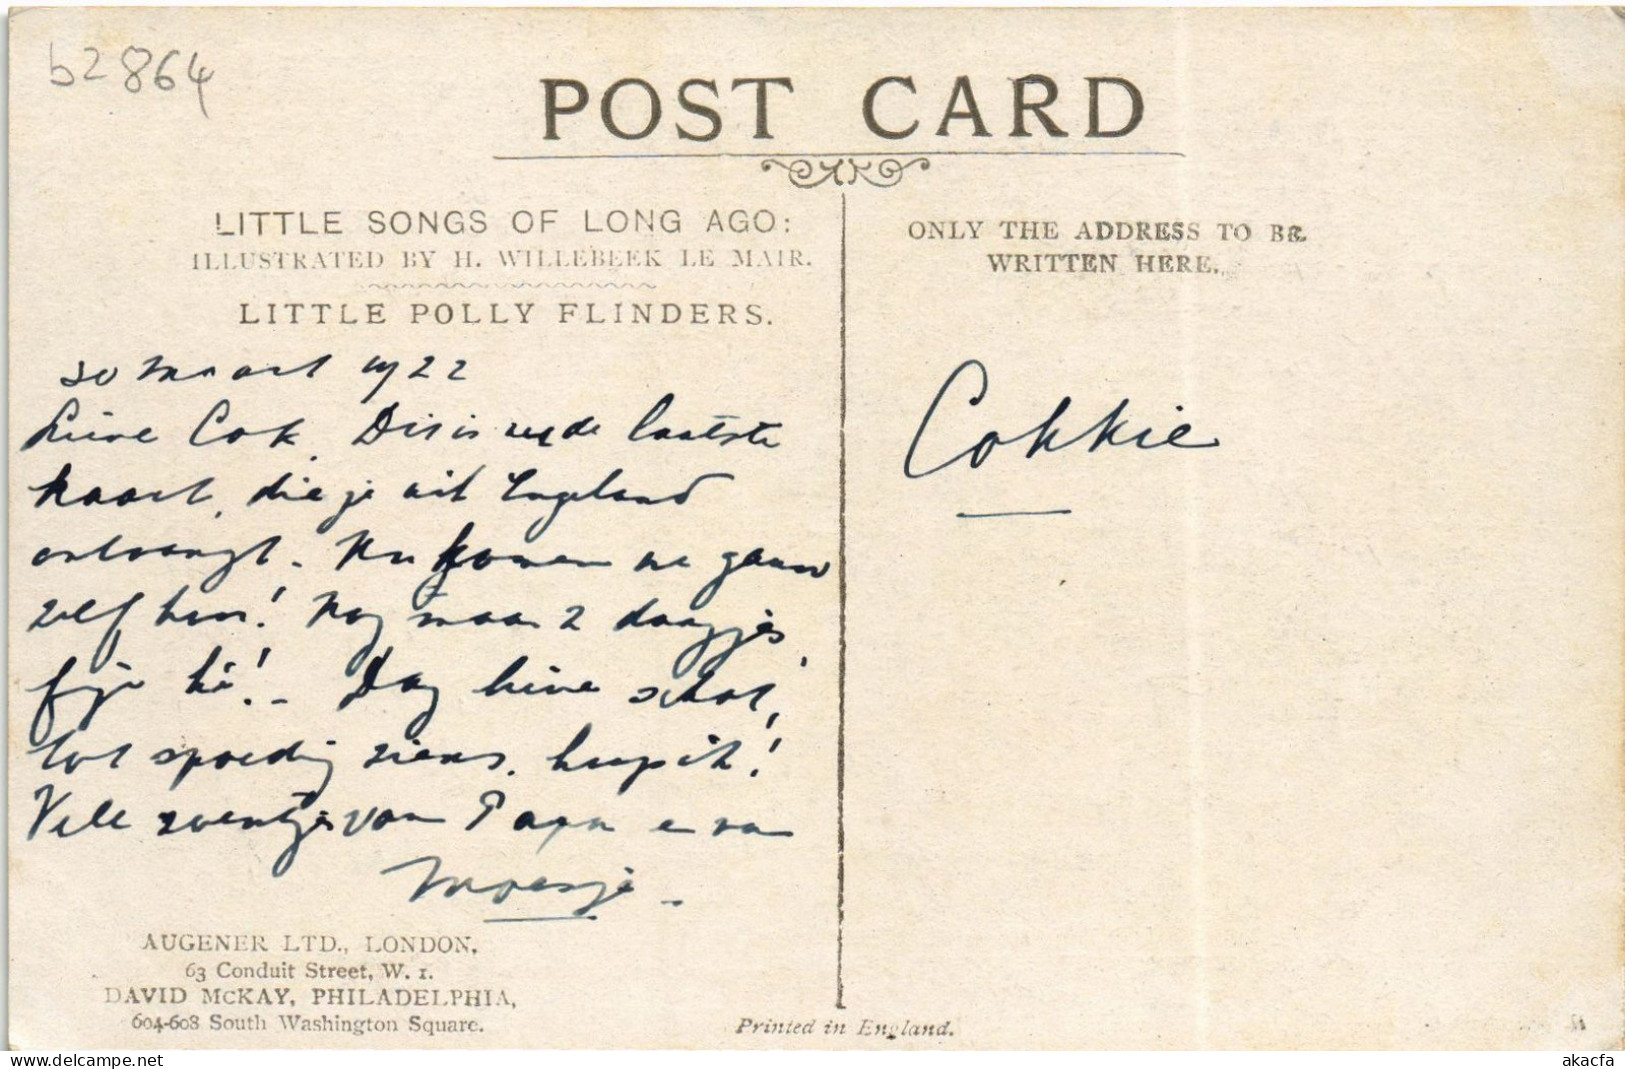 b2864
POST CARD
LITTLE SONGS OF LONG AGO:
ILLUSTRATED BY H. WILLEBEEK LE MAIR.
LITTLE POLLY FLINDERS.
30 Maart 1922
Lieve Cok. Dit is de laatste
kaart, die je uit Engeland
ontvangt. Nu komen we gauw
zelf hoor! Nog maar 2 daagjes,
fijn hè! - Dag lieve schat,
tot spoedig ziens, hoop ik!
Vele zoentjes van Papa en van
Moesje.
AUGENER LTD., LONDON,
63 Conduit Street, W. 1.
DAVID McKAY, PHILADELPHIA,
604-608 South Washington Square.
ONLY THE ADDRESS TO BE
WRITTEN HERE.
Cokkie
Printed in England.
akacfa